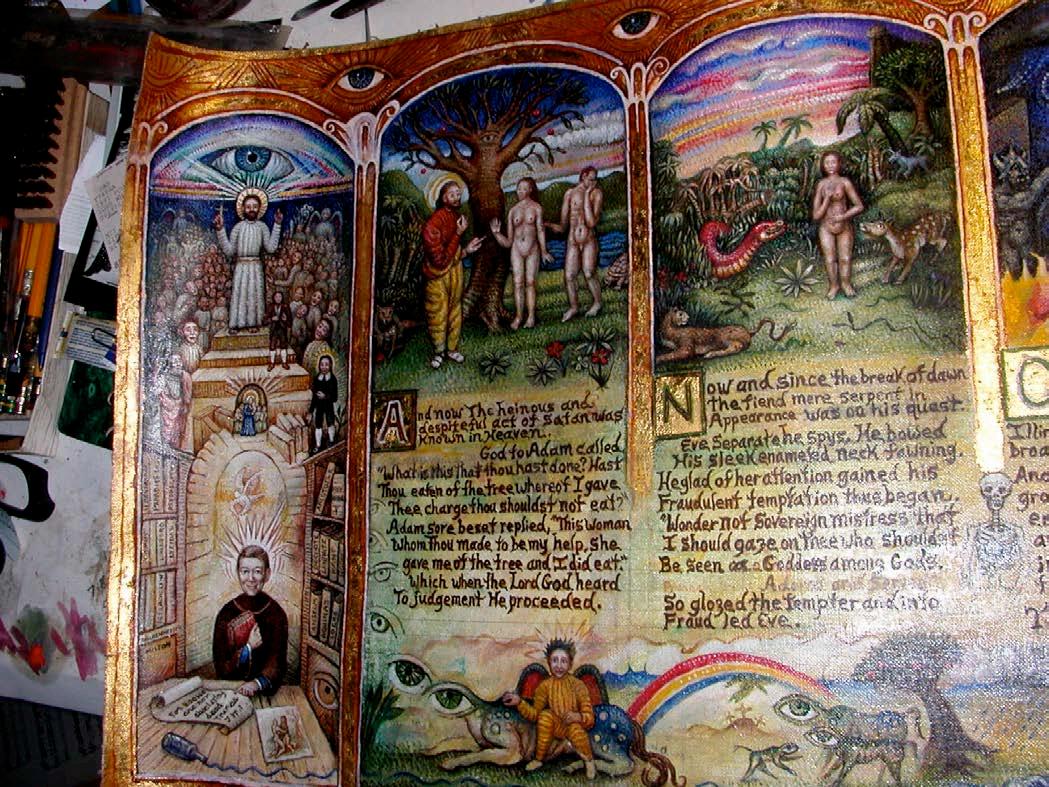 And now The heinous and
despiteful act of Satan was
known in Heaven.
God to Adam called
"What is this that thou hast done? Hast
Thou eaten of the tree whereof I gave
Thee charge thou shouldst not eat?"
Adam sore beset replied, "This woman
Whom thou made to be my help, she
gave me of the tree and I did eat."
Which when the Lord God heard
To judgement He proceeded.
Now and since the break of dawn
the fiend mere serpent in
Appearance was on his quest.
Eve Separate he spys. He bowed
His sleek enameled neck fawning.
He glad of her attention gained his
Fraudulent temptation thus began.
"Wonder not Sovereign mistress that
I should gaze on thee who shouldst
Be seen a Goddess among Gods.
So glozed the tempter and into
Fraud led Eve.
O
Illin
broa
And
gro